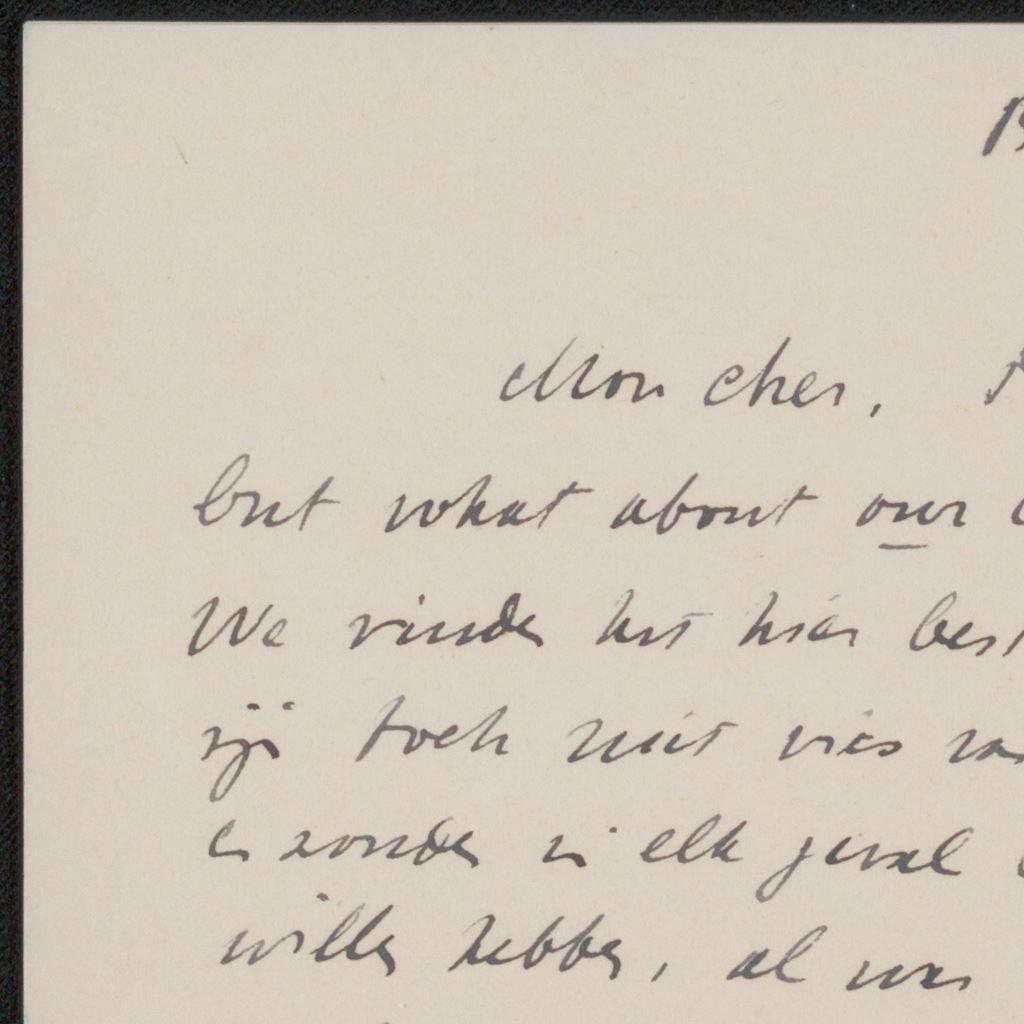 19
Mon cher,
but what about our
We vinden het hier best
zij toch niet vies van
en zouden in elk geval
willen hebben, al was